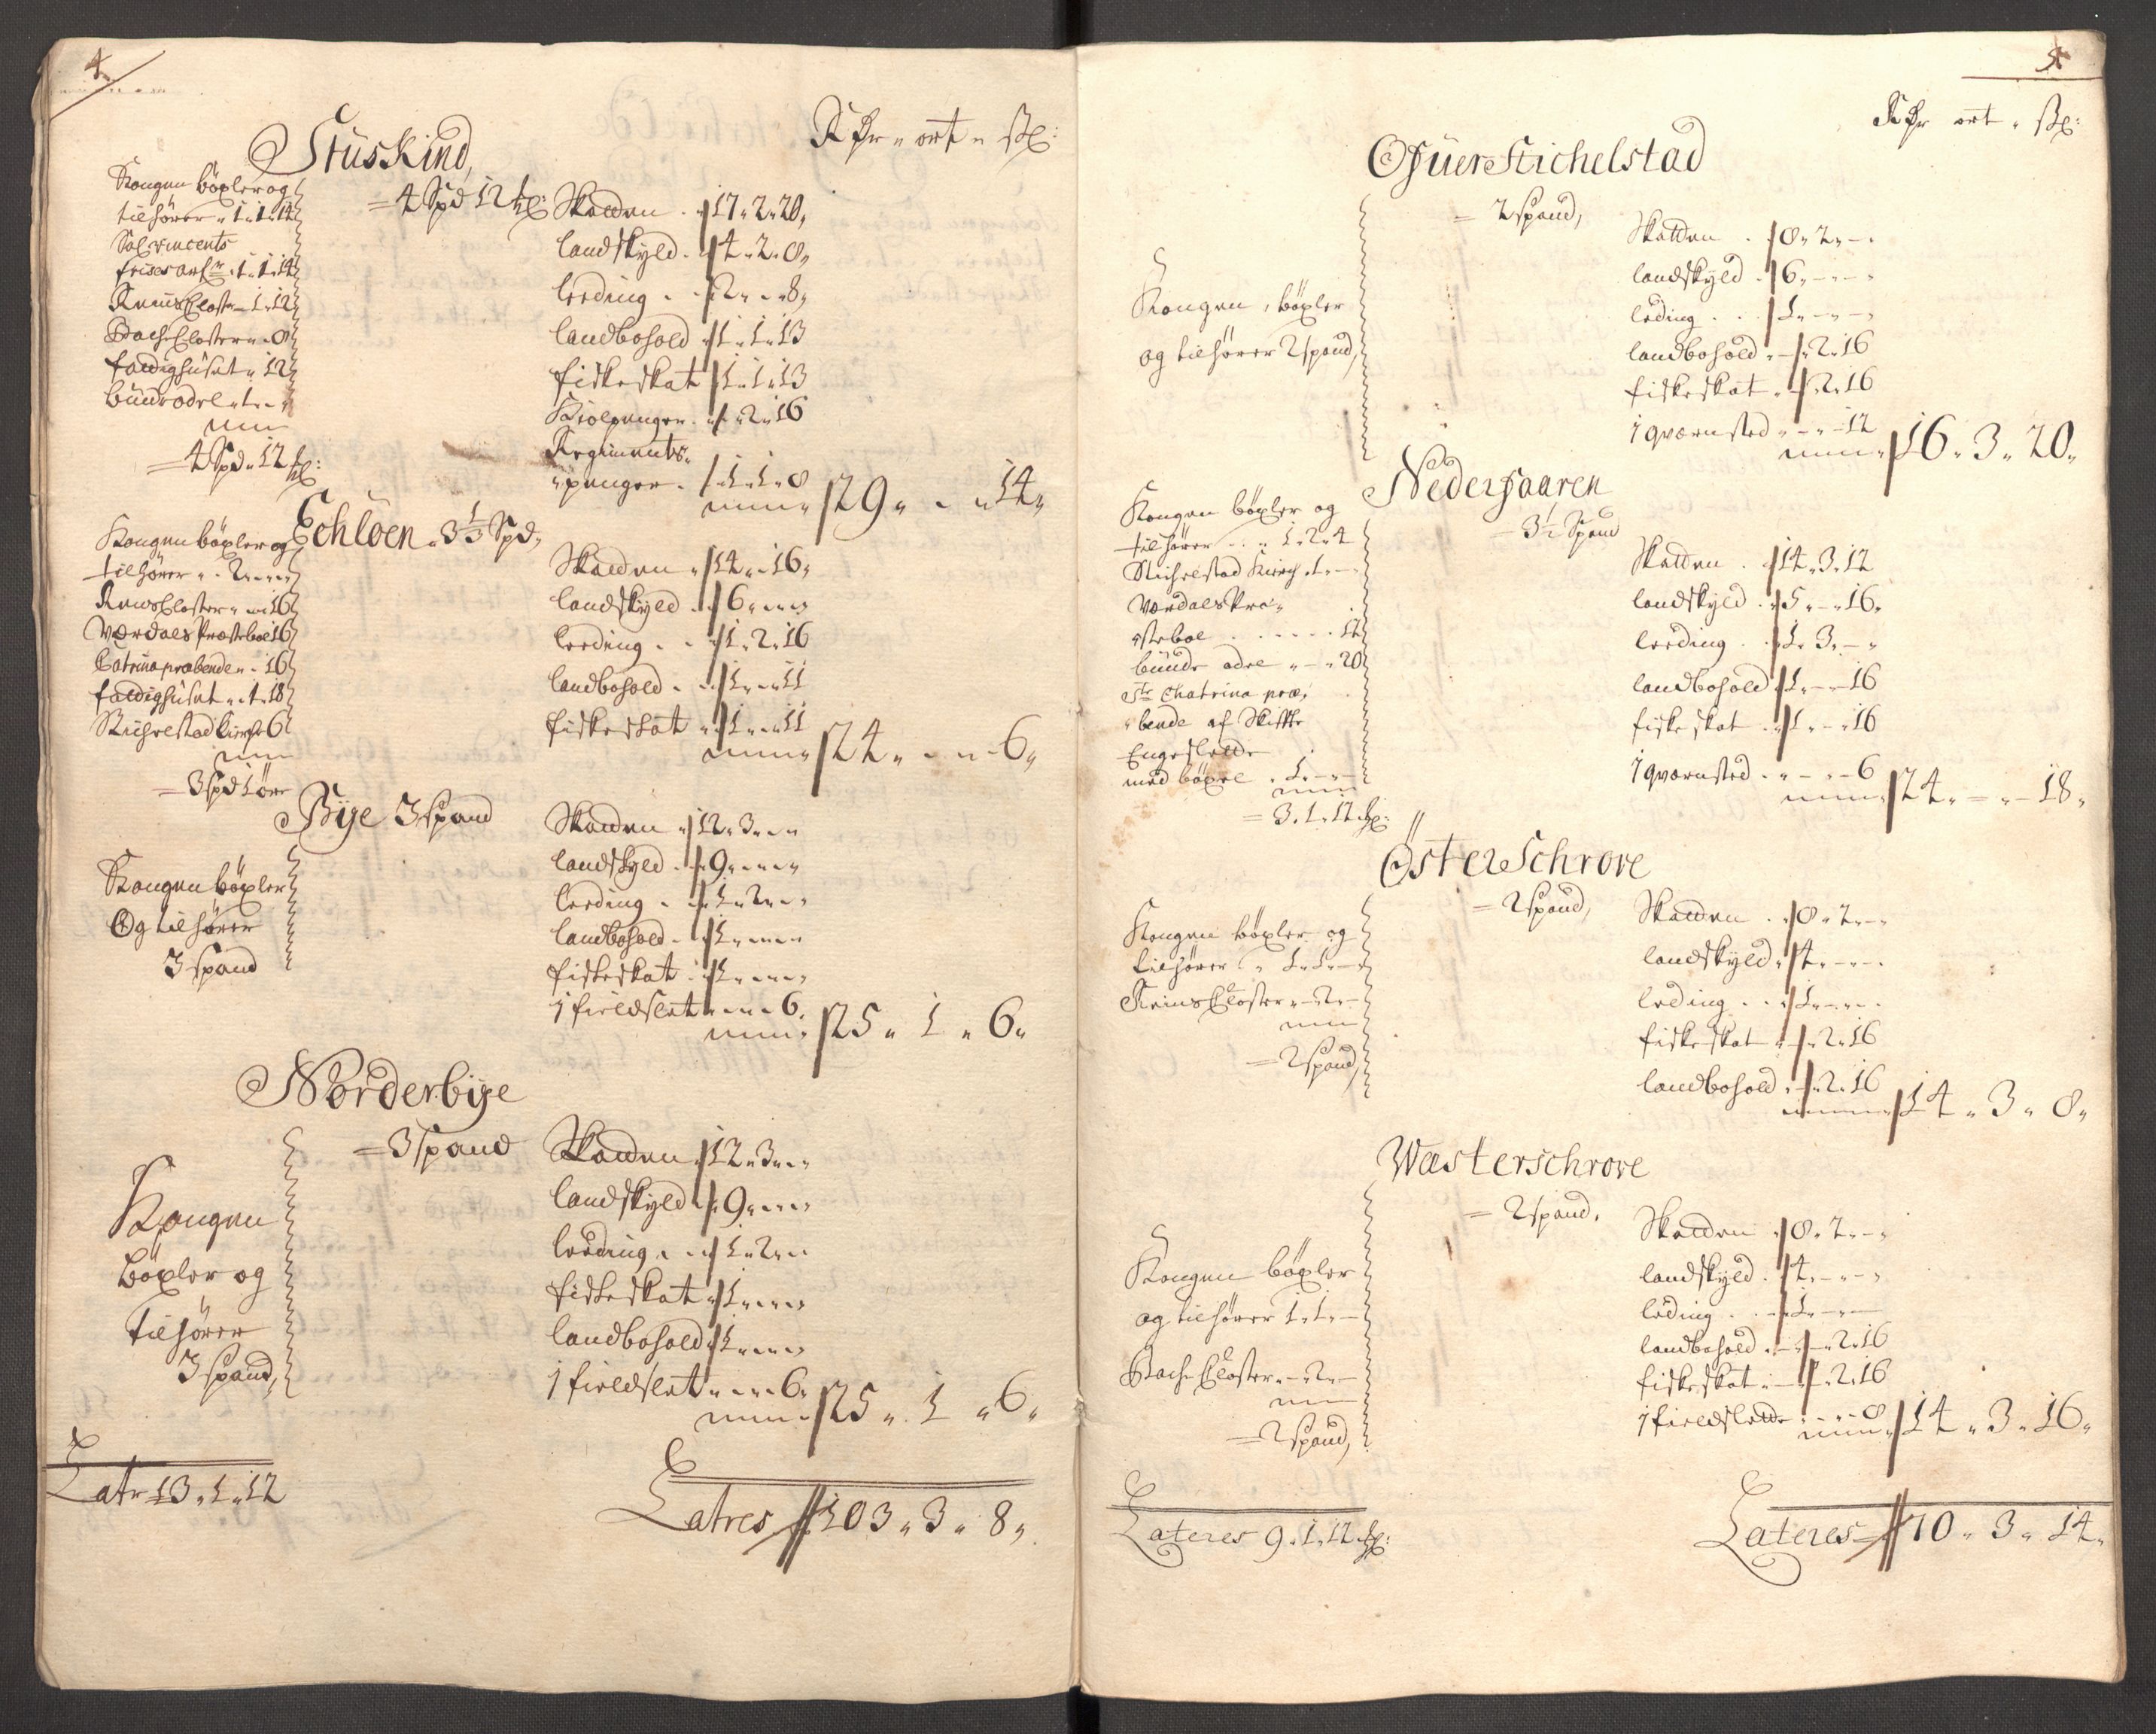 4
R Dr " ort " sk:
Stuskind,
= 4 Spd 12 mk:
Kongen böxler og
tilhörer " 1 " 1 " 14
Sal vincents
frises arf: " 1 " 1 " 14
Reins Closter " 1 " 12
Bache Closter " " 8
fattighuset " 12
bunde odel " 1 " "
= 4 Spd " 12
Skatten " 17 " 2 " 20 "
landskyld " 4 " 2 " 8 "
leeding " 2 " " 8 "
landbohold " 1 " 1 " 13
fiskeskat 1 " 1 " 13
" 2 " 16
Regiments "
" penger " 1 " 1 " 8
29 " " 14 "
Echloen " 3 1/3 Spd "
Kongen böxler og
tilhörer " 2 " " "
Reins Closter " " 16
Værdals Præstebol 16
Catrina præbende " 16
fattighuset " 1 " 18
Stichelstad Kirche 6
= 3 spd 1 öre
Skatten " 14 " " 16 "
landskyld " 6 " " "
leeding " 1 " 2 " 16
landbohold " 1 " " 11
fiskeskat " 1 " " 11
24 " " 6 "
Bye 3 spand
Kongen böxler
Og tilhörer
3 spand
Skatten " 12 " 3 " "
landskyld " 9 " " "
leeding " 1 " 2 " "
landbohold " 1 " " "
fiskeskat " 1 " " "
1 fieldslet " " " 6 "
25 " 1 " 6 "
Nörderbÿe
= 3 spand
Kongen
böxler og
tilhörer
3 spand,
Skatten " 12 " 3 " "
landskyld " 9 " " "
leeding " 1 " 2 " "
fiskeskat " 1 " " "
landbohold " 1 " " "
1 fieldslet " " " 6 "
25 " 1 " 6 "
Latr 13 " 1 " 12
Latres 103 " 3 " 8 "
5
R Dr ort " sk:
Ofüer Stichelstad
= 2 spand,
Kongen, böxler
og tilhörer 2 spand,
Skatten . 8 " 2 " - "
landskyld . 6 " - " -
leding . . 1 " - " -
landbohold " - " 2 " 16
fiskeskat " - " 2 " 16
1 qværnsted " - " - 12
16 " 3 " 20 "
Nederhaaren
= 3 1/2 Spand
Kongen böxler og
tilhörer " 1 " 2 " 4
Stichelstad Kirch " 1 " -
Værdals Præ "
" stebol . . . . . 12
bunde odel " - " 20
Ste Chatrina præ "
" bende af Skifte
Engeslette
med böxel . 1 " - " -
= 3 " 1 " 12
Skatten . 14 " 3 " 12
landskyld . 5 " - " 16 "
leeding . 1 " 3 " - "
landbohold 1 " - " 16
fiskeskat . 1 " - " 16
1 qværnsted " - " - 6
24 " - " 18 "
Öster Schrove
= 2 spand,
Kongen böxler og
tilhörer " 1 " 1 " -
Reins Closter " - 2 " -
= 2 spand,
Skatten . 8 " 2 " - "
landskyld " 4 " - " -
leding . . 1 " - " -
fiskeskat " - " 2 " 16
landbohold " - " 2 " 16
14 " 3 " 8 "
Wæsterschrove
= 2 spand.
Kongen böxler
og tilhörer 1 " 1 " -
Bache Closter " - 2 " -
= 2 spand,
Skatten 8 " 2 " - "
landskyld . 4 " - " -
leding . . 1 " - " -
landbohold " - " 2 " 16
fiskeskat " - " 2 " 16
1 fieldslette " - " - 8
14 " 3 " 16 "
Lateres 9 " 1 " 12
Lateres 70 " 3 " 14 "